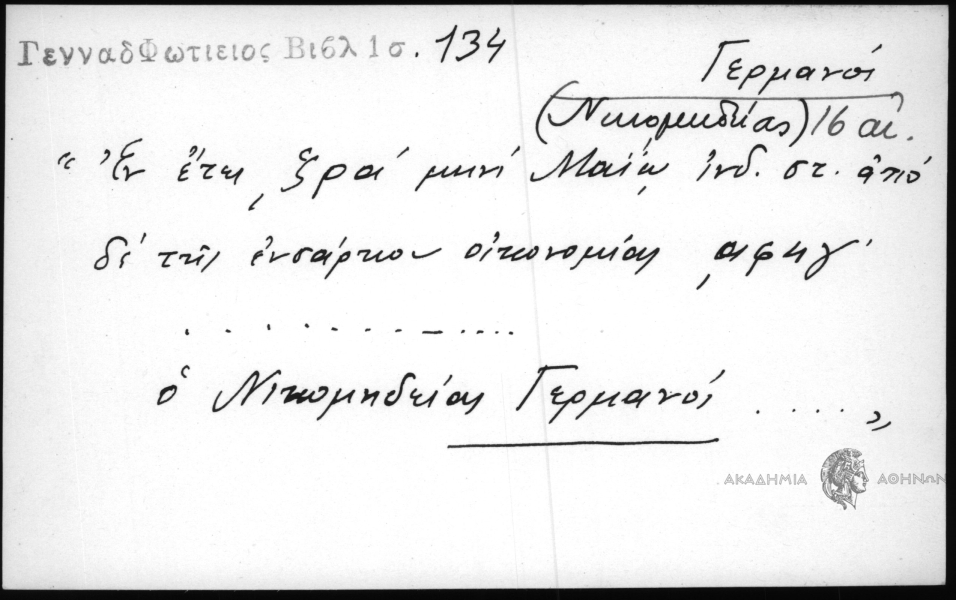 ΓενναδΦωτιειος Βιβλ 1 σ. 134
Γερμανός
(Νικομηδείας) 16 αἰ.
"Ἐν ἔτει ͵ζραʹ μηνὶ Μαΐῳ ἰνδ. στ. ἀπὸ
δὲ τῆς ἐνσάρκου οἰκονομίας ͵αφϟγʹ
. . . . . . . – . . . .
ὁ Νικομηδείας Γερμανός . . . . . "
ΑΚΑΔΗΜΙΑ ΑΘΗΝΩΝ